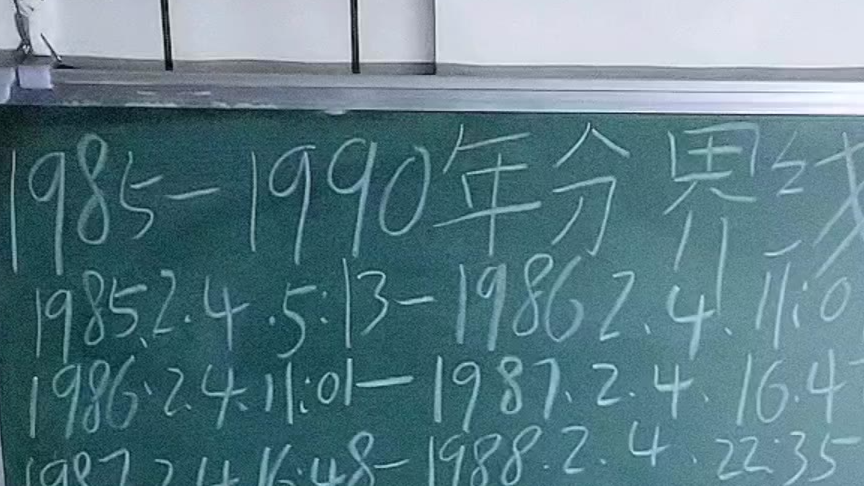 1985-1990年分界线
1985.2.4.5:13-1986.2.4.11:0
1986.2.4.11:01-1987.2.4.16.4
1987.2.4.16:48-1988.2.4.22:35